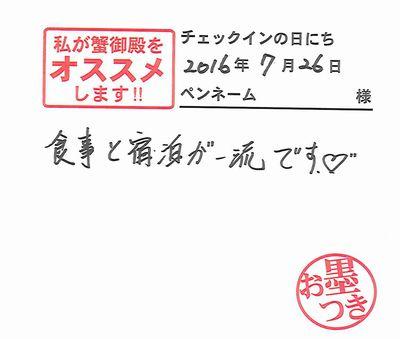 私が蟹御殿を
オススメ
します!!
チェックインの日にち
2016年7月26日
ペンネーム 様
食事と宿泊が一流です♡"
お墨つき